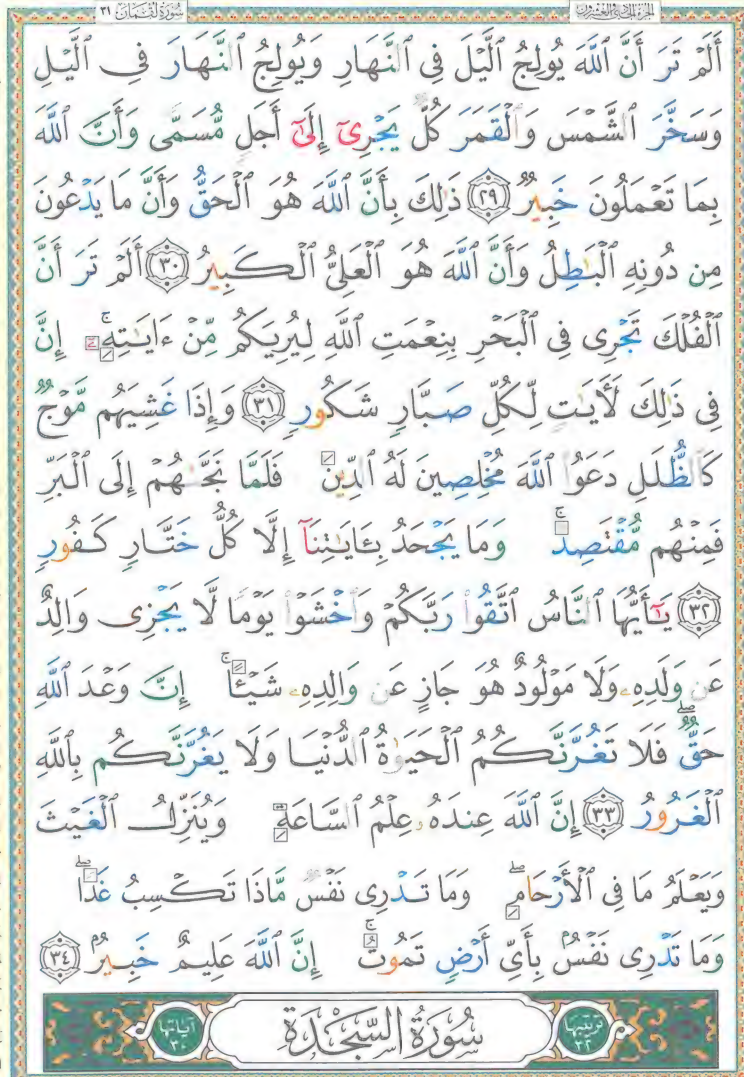 الجزء الحادي والعشرون
سُورَةُ لُقْمَان ٣١
أَلَمْ تَرَ أَنَّ ٱللَّهَ يُولِجُ ٱلَّيْلَ فِى ٱلنَّهَارِ وَيُولِجُ ٱلنَّهَارَ فِى ٱلَّيْلِ
وَسَخَّرَ ٱلشَّمْسَ وَٱلْقَمَرَ كُلٌّ يَجْرِىٓ إِلَىٰٓ أَجَلٍ مُّسَمًّى وَأَنَّ ٱللَّهَ
بِمَا تَعْمَلُونَ خَبِيرٌ ٢٩ ذَٰلِكَ بِأَنَّ ٱللَّهَ هُوَ ٱلْحَقُّ وَأَنَّ مَا يَدْعُونَ
مِن دُونِهِ ٱلْبَٰطِلُ وَأَنَّ ٱللَّهَ هُوَ ٱلْعَلِىُّ ٱلْكَبِيرُ ٣٠ أَلَمْ تَرَ أَنَّ
ٱلْفُلْكَ تَجْرِى فِى ٱلْبَحْرِ بِنِعْمَتِ ٱللَّهِ لِيُرِيَكُم مِّنْ ءَايَٰتِهِۦٓ ۚ إِنَّ
فِى ذَٰلِكَ لَءَايَٰتٍ لِّكُلِّ صَبَّارٍ شَكُورٍ ٣١ وَإِذَا غَشِيَهُم مَّوْجٌ
كَٱلظُّلَلِ دَعَوُا۟ ٱللَّهَ مُخْلِصِينَ لَهُ ٱلدِّينَ فَلَمَّا نَجَّىٰهُمْ إِلَى ٱلْبَرِّ
فَمِنْهُم مُّقْتَصِدٌ ۚ وَمَا يَجْحَدُ بِـَٔايَٰتِنَآ إِلَّا كُلُّ خَتَّارٍ كَفُورٍ
٣٢ يَٰٓأَيُّهَا ٱلنَّاسُ ٱتَّقُوا۟ رَبَّكُمْ وَٱخْشَوْا۟ يَوْمًا لَّا يَجْزِى وَالِدٌ
عَن وَلَدِهِۦ وَلَا مَوْلُودٌ هُوَ جَازٍ عَن وَالِدِهِۦ شَيْـًٔا ۚ إِنَّ وَعْدَ ٱللَّهِ
حَقٌّ ۖ فَلَا تَغُرَّنَّكُمُ ٱلْحَيَوٰةُ ٱلدُّنْيَا وَلَا يَغُرَّنَّكُم بِٱللَّهِ
ٱلْغَرُورُ ٣٣ إِنَّ ٱللَّهَ عِندَهُۥ عِلْمُ ٱلسَّاعَةِ وَيُنَزِّلُ ٱلْغَيْثَ
وَيَعْلَمُ مَا فِى ٱلْأَرْحَامِ ۖ وَمَا تَدْرِى نَفْسٌ مَّاذَا تَكْسِبُ غَدًا ۖ
وَمَا تَدْرِى نَفْسٌۢ بِأَىِّ أَرْضٍ تَمُوتُ ۚ إِنَّ ٱللَّهَ عَلِيمٌ خَبِيرٌۢ ٣٤
ترتيبها ٣٢
سُورَةُ السَّجْدَةِ
آياتها ٣٠